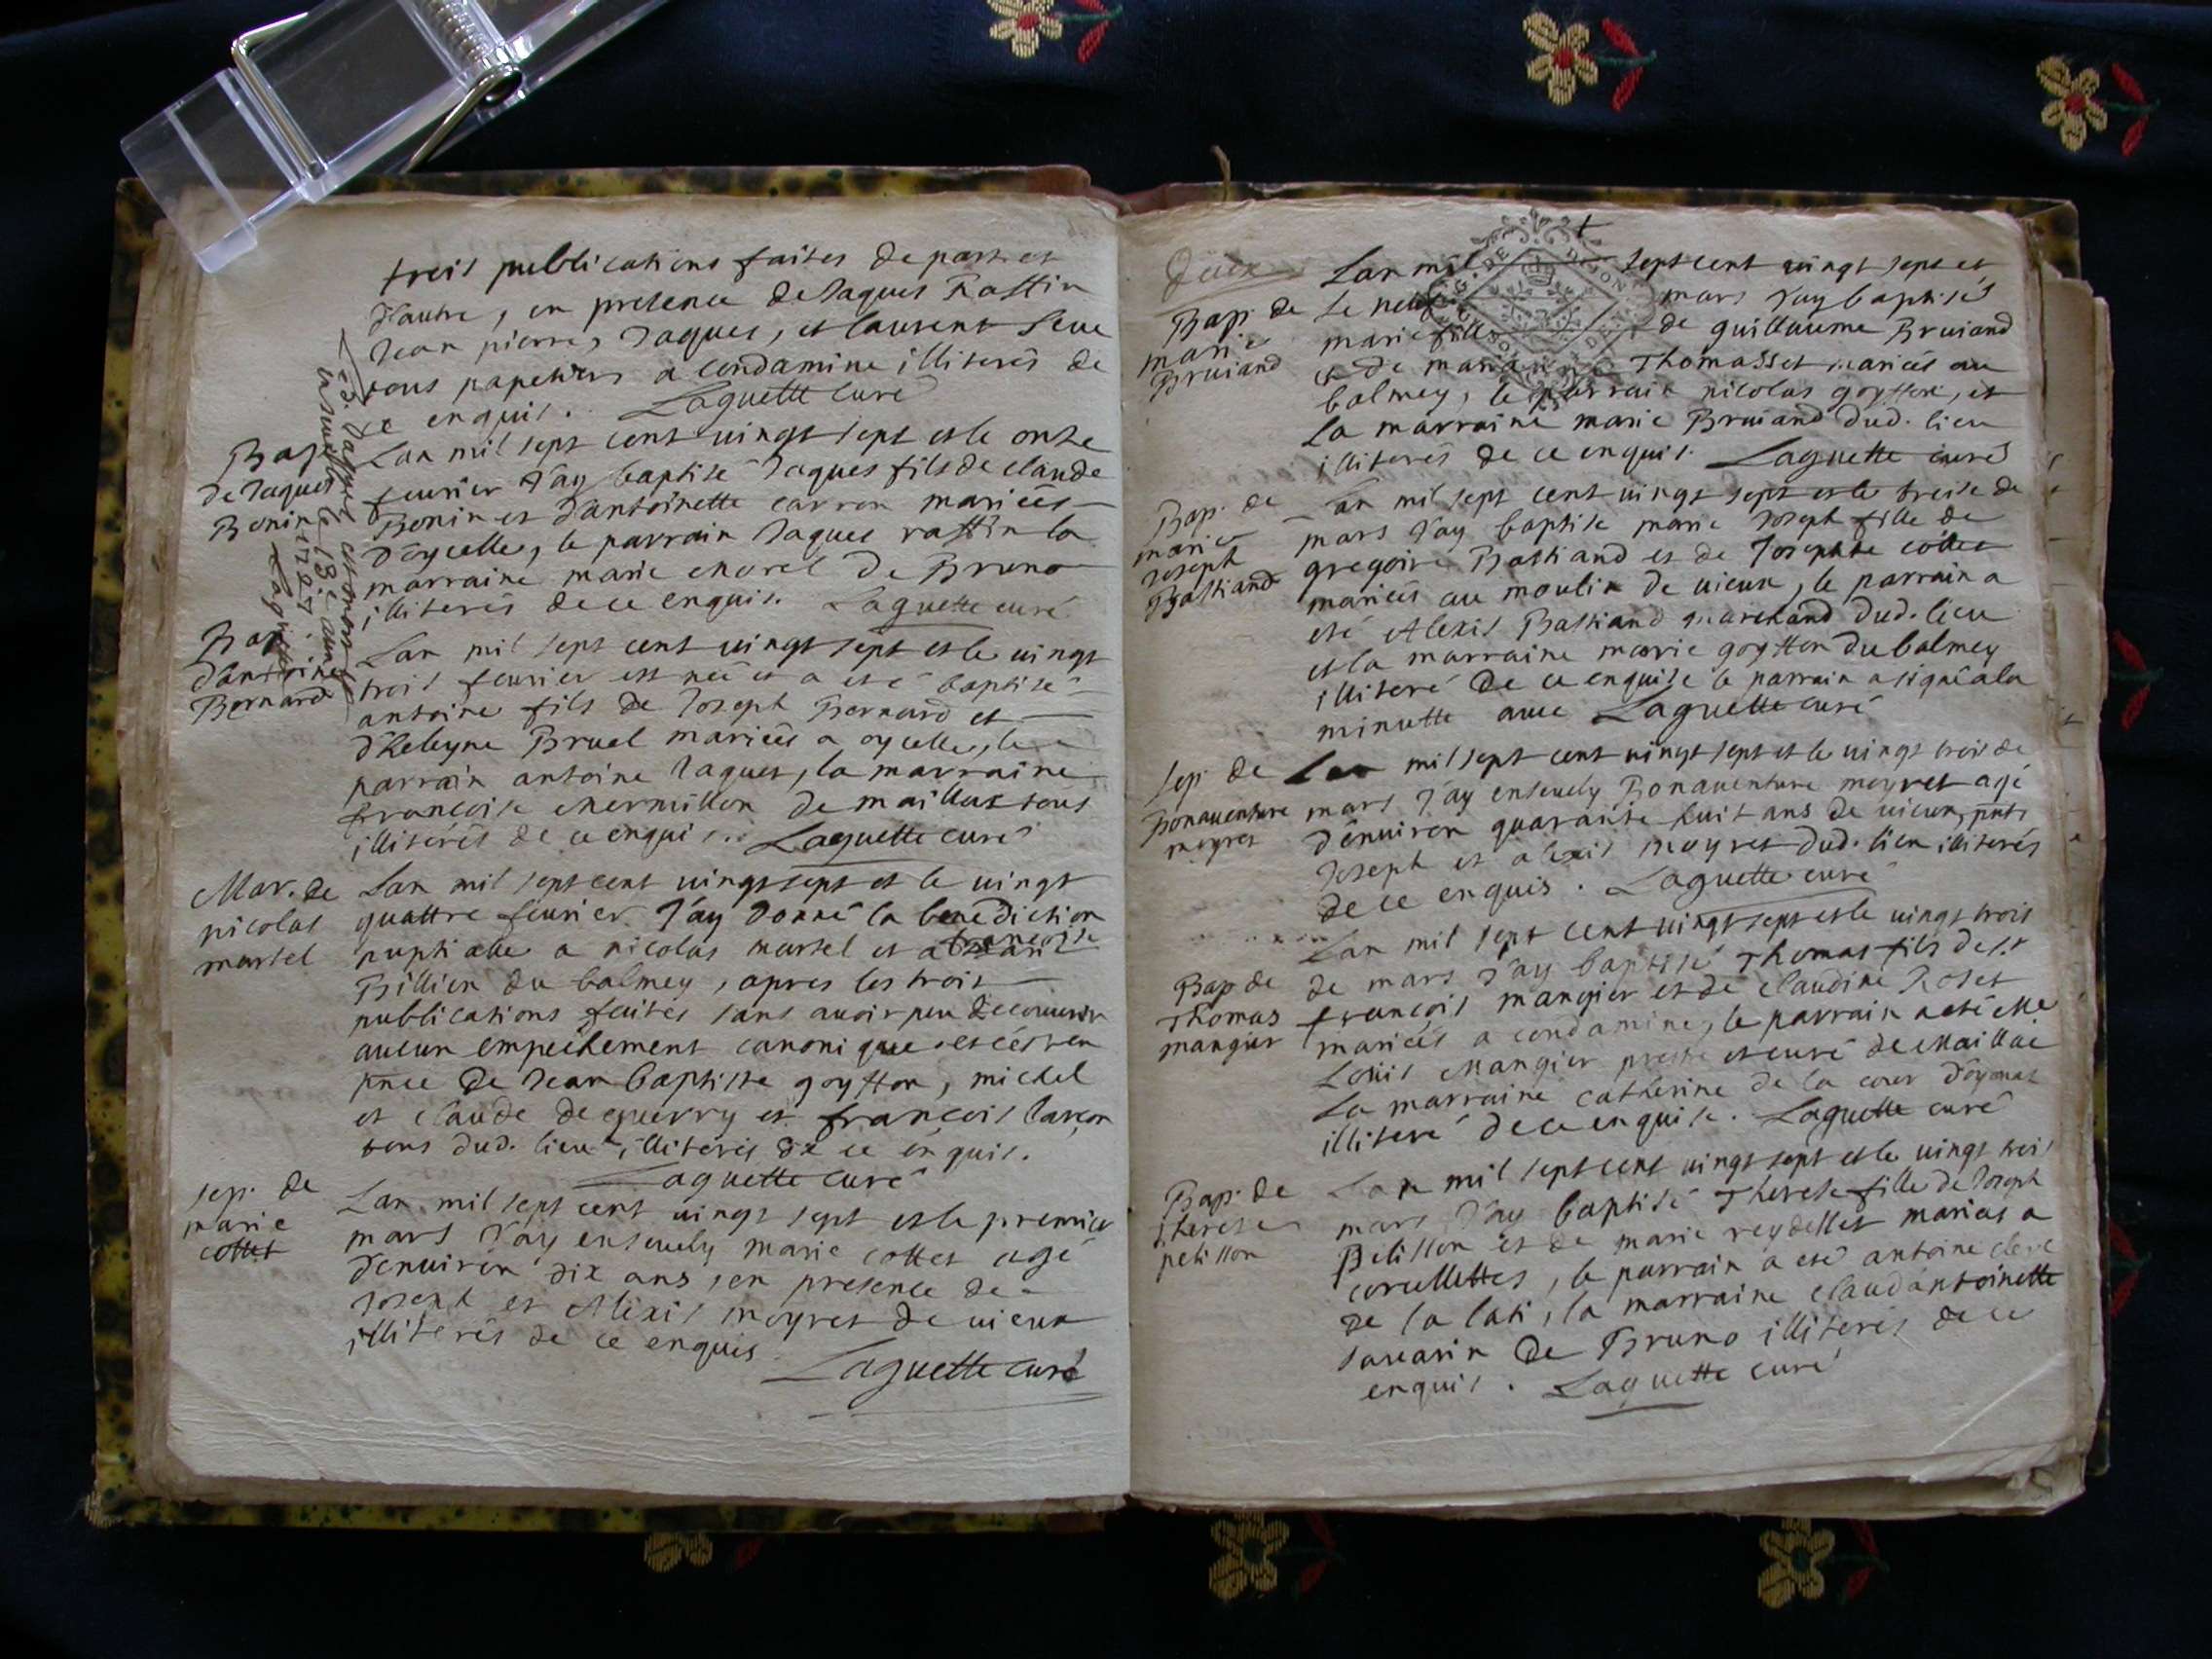 trois publications faites de part et
d'autre, en presence de Jaques Raffin
Jean pierre, Jaques, et laurent
tous papetiers a condamine illiterés de
ce enquis. Laguette curé
Bap.
de Jaques
Bonin
Lan mil sept cent vingt sept et le onze
feurier J'ay baptisé Jaques fils de claude
Bonin et d'antoinette carron mariées
d'oycelle, le parrain Jaques raffin la
marraine marie morel de Bruno
illiterés de ce enquis. Laguette curé
Bap
d'antoine
Bernard
Lan mil sept cent vingt sept et le vingt
trois feurier est né et a eté baptisé
antoine fils de Joseph Bernard et
d'heleyne Bruel mariées a oycelle, le
parrain antoine Jaques, la marraine
francoise mermillon de maillat tous
illiterés de ce enquis. Laguette curé
Mar. de
nicolas
martel
Lan mil sept cent vingt sept et le vingt
quattre feurier J'ay donné la benediction
nuptialle a nicolas martel et a francoise
Billion du balmey, apres les trois
publications faites sans avoir peu decouurir
aucun empechement canonique et
pnce de Jean baptiste goyffon, michel
et claude de querry et françois
tous dud. lieu illiterés de ce enquis.
Laguette curé
sep. de
marie
cottet
Lan mil sept cent vingt sept et le premier
mars J'ay enseuely marie cottet agé
d'enuiron dix ans, en presence de
Joseph et Alexis moyret de vieux
illiterés de ce enquis
Laguette curé
Deux
Bap. de
marie
Bruiand
Lan mil sept cent vingt sept et
le neuf mars J'ay baptisé
marie fille de guillaume Bruiand
et de Thomasset mariés au
balmey, le parrain nicolas goyffon, et
la marraine marie Bruiand dud. lieu
illiterés de ce enquis. Laguette curé
Bap. de
marie
Joseph
Bastiand
Lan mil sept cent vingt sept et le treise de
mars J'ay baptisé marie Joseph fille de
gregoire Bastiand et de Josephte collet
mariés au moulin de vieux, le parrain a
eté Alexis Bastiand marchand dud. lieu
et la marraine marie goyffon du balmey
illiteré de ce enquise le parrain a signé a la
minutte auec Laguette curé
Sep. de
Bonauenture
moyret
Lan mil sept cent vingt sept et le vingt trois de
mars J'ay enseuely Bonauenture moyret agé
d'enuiron quarante huit ans de vieux, pnts
Joseph et alexis moyret dud. lieu illiterés
de ce enquis. Laguette curé
Bap de
Thomas
mangier
Lan mil sept cent vingt sept et le vingt trois
de mars J'ay baptisé Thomas fils de Sr
françois mangier et de claudine Roset
mariés a condamine, le parrain a eté Me
Louis mangier prestre et curé de
La marraine catherine de la cour d'oyonat
illiteré de ce enquise. Laguette curé
Bap. de
therese
pelisson
Lan mil sept cent vingt sept et le vingt trois
mars J'ay baptisé Therese fille de Joseph
Pelisson et de marie reydellet mariés a
corcellettes, le parrain a eté antoine clerc
De la lati, la marraine claudantoinette
de Bruno illiterés de ce
enquis. Laguette curé